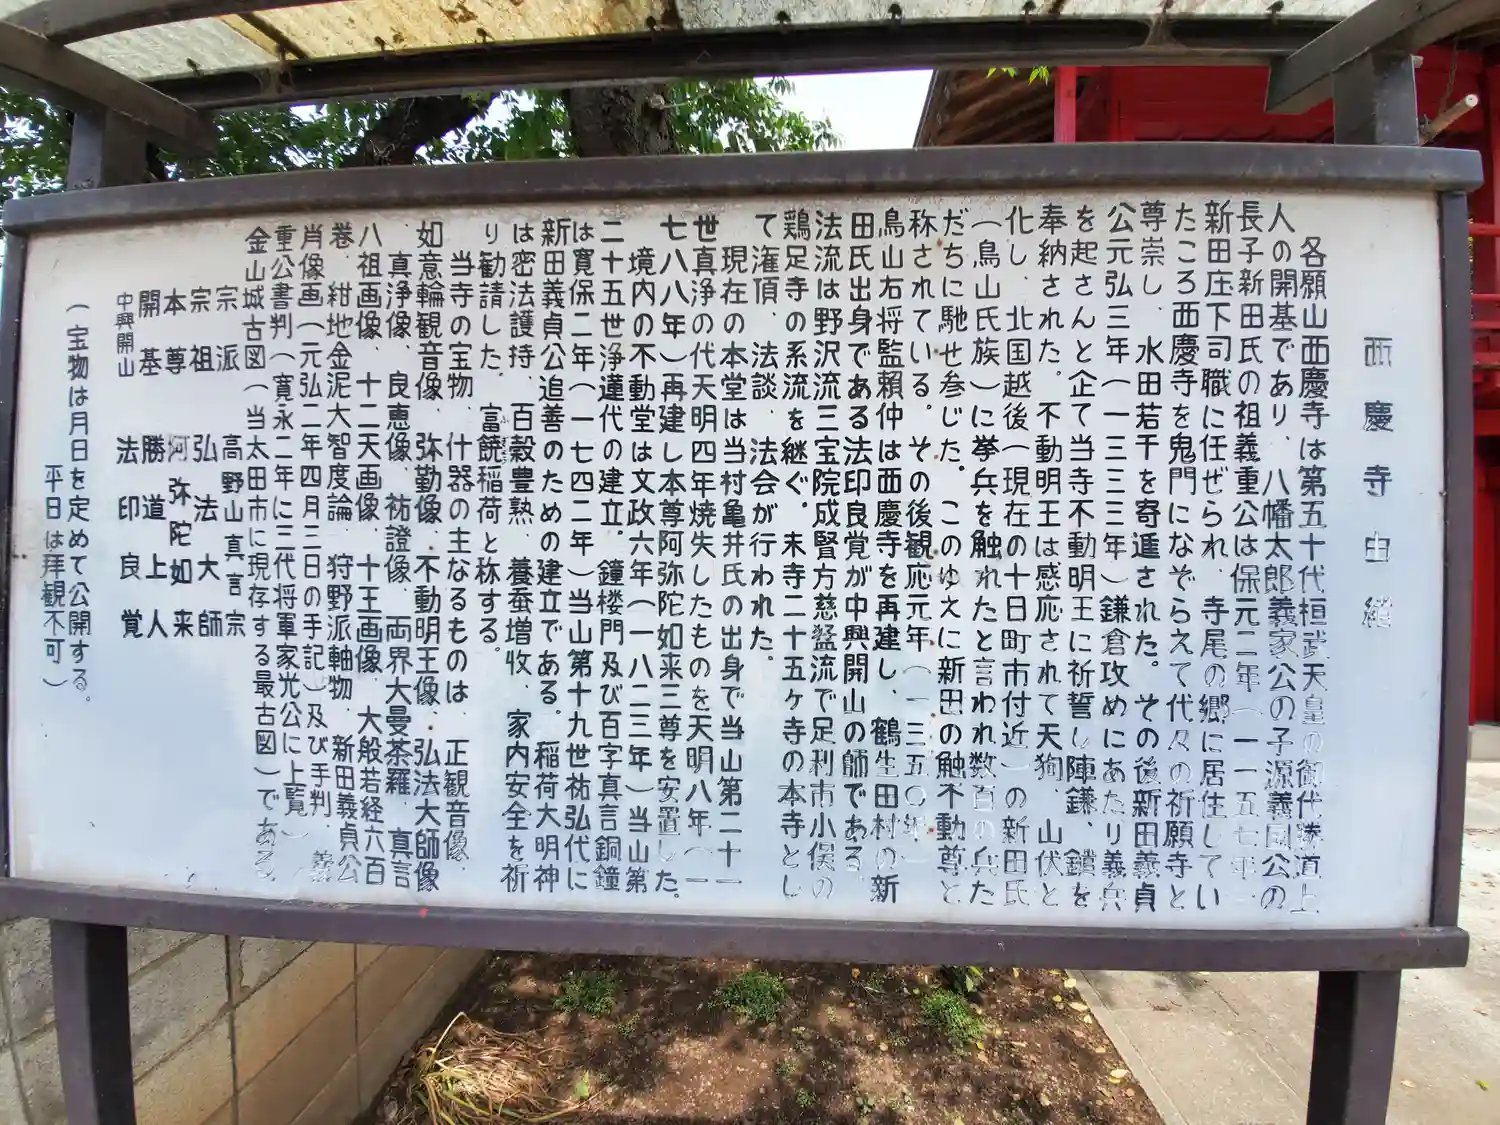 西慶寺由緒
各願山西慶寺は第五十代桓武天皇の御代勝道上
人の開基であり、八幡太郎義家公の子源義国公の
長子新田氏の祖義重公は保元二年(一一五七年)
新田庄下司職に任ぜられ、寺尾の郷に居住してい
たころ西慶寺を鬼門になぞらえて代々の祈願寺と
尊崇し、水田若干を寄進された。その後新田義貞
公元弘三年(一三三三年)鎌倉攻めにあたり義兵
を起さんと企て当寺不動明王に祈誓し陣鎌、鎖を
奉納された。不動明王は感応されて天狗、山伏と
化し、北国越後(現在の十日町市付近)の新田氏
(鳥山氏族)に挙兵を触れたと言われ数百の兵た
だちに馳せ参じた。このゆえに新田の触不動尊と
称されている。その後観応元年(一三五〇年)
鳥山右将監頼仲は西慶寺を再建し、鶴生田村の新
田氏出身である法印良覚が中興開山の師である。
法流は野沢流三宝院成賢方慈猛流で足利市小俣の
鶏足寺の系流を継ぐ。末寺二十五ヶ寺の本寺とし
て潅頂、法談、法会が行われた。
現在の本堂は当村亀井氏の出身で当山第二十一
世真浄の代天明四年焼失したものを天明八年(一
七八八年)再建し本尊阿弥陀如来三尊を安置した。
境内の不動堂は文政六年(一八二三年)当山第
二十五世浄蓮代の建立。鐘楼門及び百字真言銅鐘
は寛保二年(一七四二年)当山第十九世祐弘代に
新田義貞公追善のための建立である。稲荷大明神
は密法護持、百穀豊熟、養蚕増収、家内安全を祈
り勧請した。富饒稲荷と称する。
当寺の宝物、什器の主なるものは、正観音像、
如意輪観音像、弥勒像、不動明王像、弘法大師像
、真浄像、良恵像、祐證像、両界大曼荼羅、真言
八祖画像、十二天画像、十王画像、大般若経六百
巻、紺地金泥大智度論、狩野派軸物、新田義貞公
肖像画(元弘二年四月三日の手記)及び手判、義
重公書判(寛永二年に三代将軍家光公に上覧)
金山城古図(当太田市に現存する最古図)である。
宗派 高野山真言宗
宗祖 弘法大師
本尊 阿弥陀如来
開基 勝道上人
中興開山 法印良覚
(宝物は月日を定めて公開する。
平日は拝観不可)